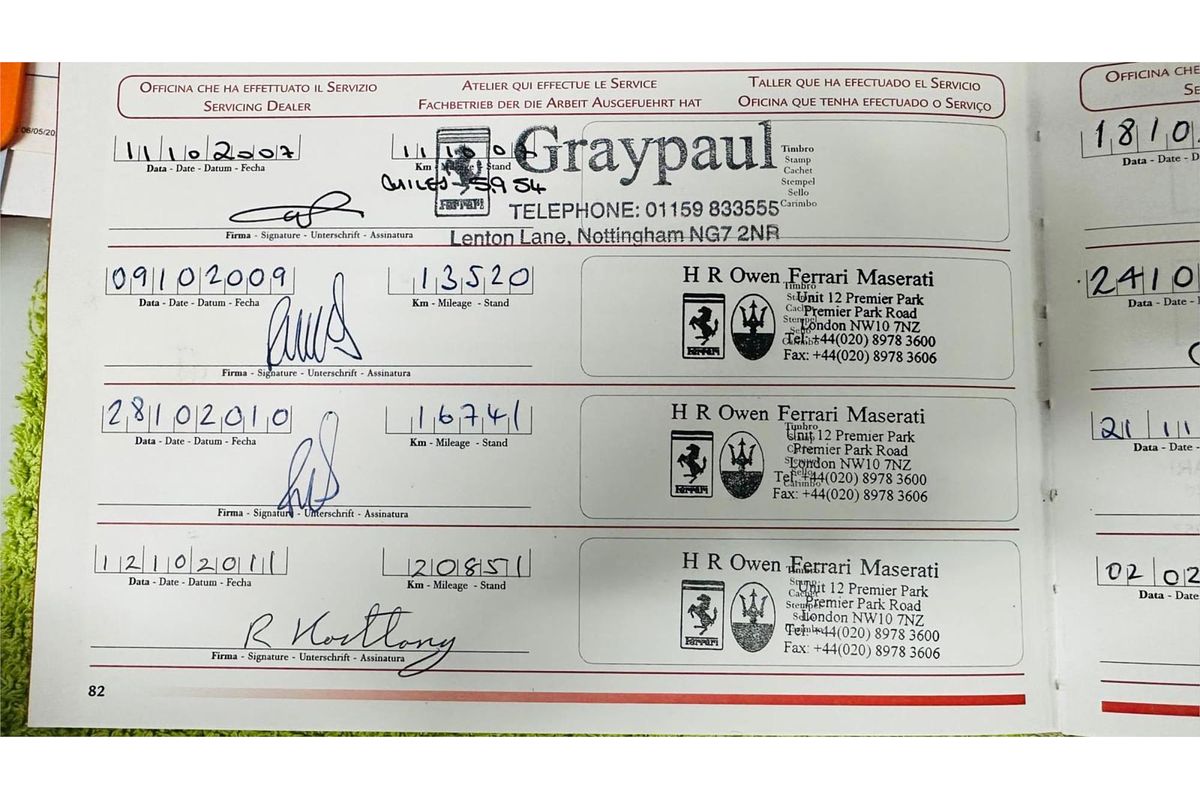 OFFICINA CHE HA EFFETTUATO IL SERVIZIO
SERVICING DEALER
ATELIER QUI EFFECTUE LE SERVICE
FACHBETRIEB DER DIE ARBEIT AUSGEFUEHRT HAT
TALLER QUE HA EFECTUADO EL SERVICIO
OFICINA QUE TENHA EFECTUADO O SERVIÇO
11102007
Data - Date - Datum - Fecha
Km - Mileage - Stand
MILES - 5954
Firma - Signature - Unterschrift - Assinatura
Ferrari
Graypaul
TELEPHONE: 01159 833555
Lenton Lane, Nottingham NG7 2NR
Timbro
Stamp
Cachet
Stempel
Sello
Carimbo
09102009
Data - Date - Datum - Fecha
13520
Km - Mileage - Stand
Firma - Signature - Unterschrift - Assinatura
H R Owen Ferrari Maserati
Unit 12 Premier Park
Premier Park Road
London NW10 7NZ
Tel: +44(020) 8978 3600
Fax: +44(020) 8978 3606
Ferrari
28102010
Data - Date - Datum - Fecha
16741
Km - Mileage - Stand
Firma - Signature - Unterschrift - Assinatura
H R Owen Ferrari Maserati
Unit 12 Premier Park
Premier Park Road
London NW10 7NZ
Tel: +44(020) 8978 3600
Fax: +44(020) 8978 3606
Ferrari
12102011
Data - Date - Datum - Fecha
20851
Km - Mileage - Stand
Firma - Signature - Unterschrift - Assinatura
H R Owen Ferrari Maserati
Unit 12 Premier Park
Premier Park Road
London NW10 7NZ
Tel: +44(020) 8978 3600
Fax: +44(020) 8978 3606
Ferrari
82
OFFICINA CHE
1810
Data - Date - D
2410
Data - Date
21 11
Data - Date
02 02
Data - Date
06/05/20